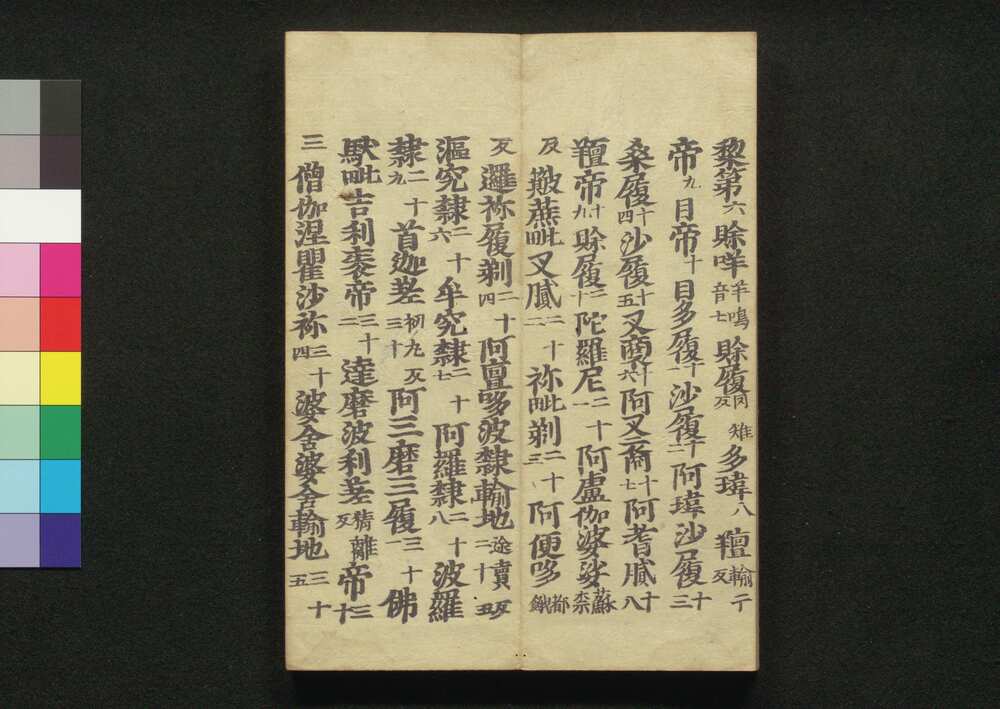 黎第六賒咩羊鳴音七賒履罔雉反多瑋八羶輸千反
帝九目帝十目多履十一沙履十二阿瑋沙履十三
桑履十四沙履十五叉裔十六阿叉裔十七阿耆膩十八
羶帝十九賒履二十陀羅尼二十一阿盧伽婆娑蘇奈
反簸蔗毗叉膩二十二祢毗剃二十三阿便哆都餓
反邏祢履剃二十四阿亶哆波隸輸地途賣反二十五
漚究隸二十六牟究隸二十七阿羅隸二十八波羅
隸二十九首迦差初几反三十阿三磨三履三十一佛
馱毗吉利袠帝三十二達磨波利差猜離反帝三十
三僧伽涅瞿沙祢三十四婆舍婆舍輸地三十五